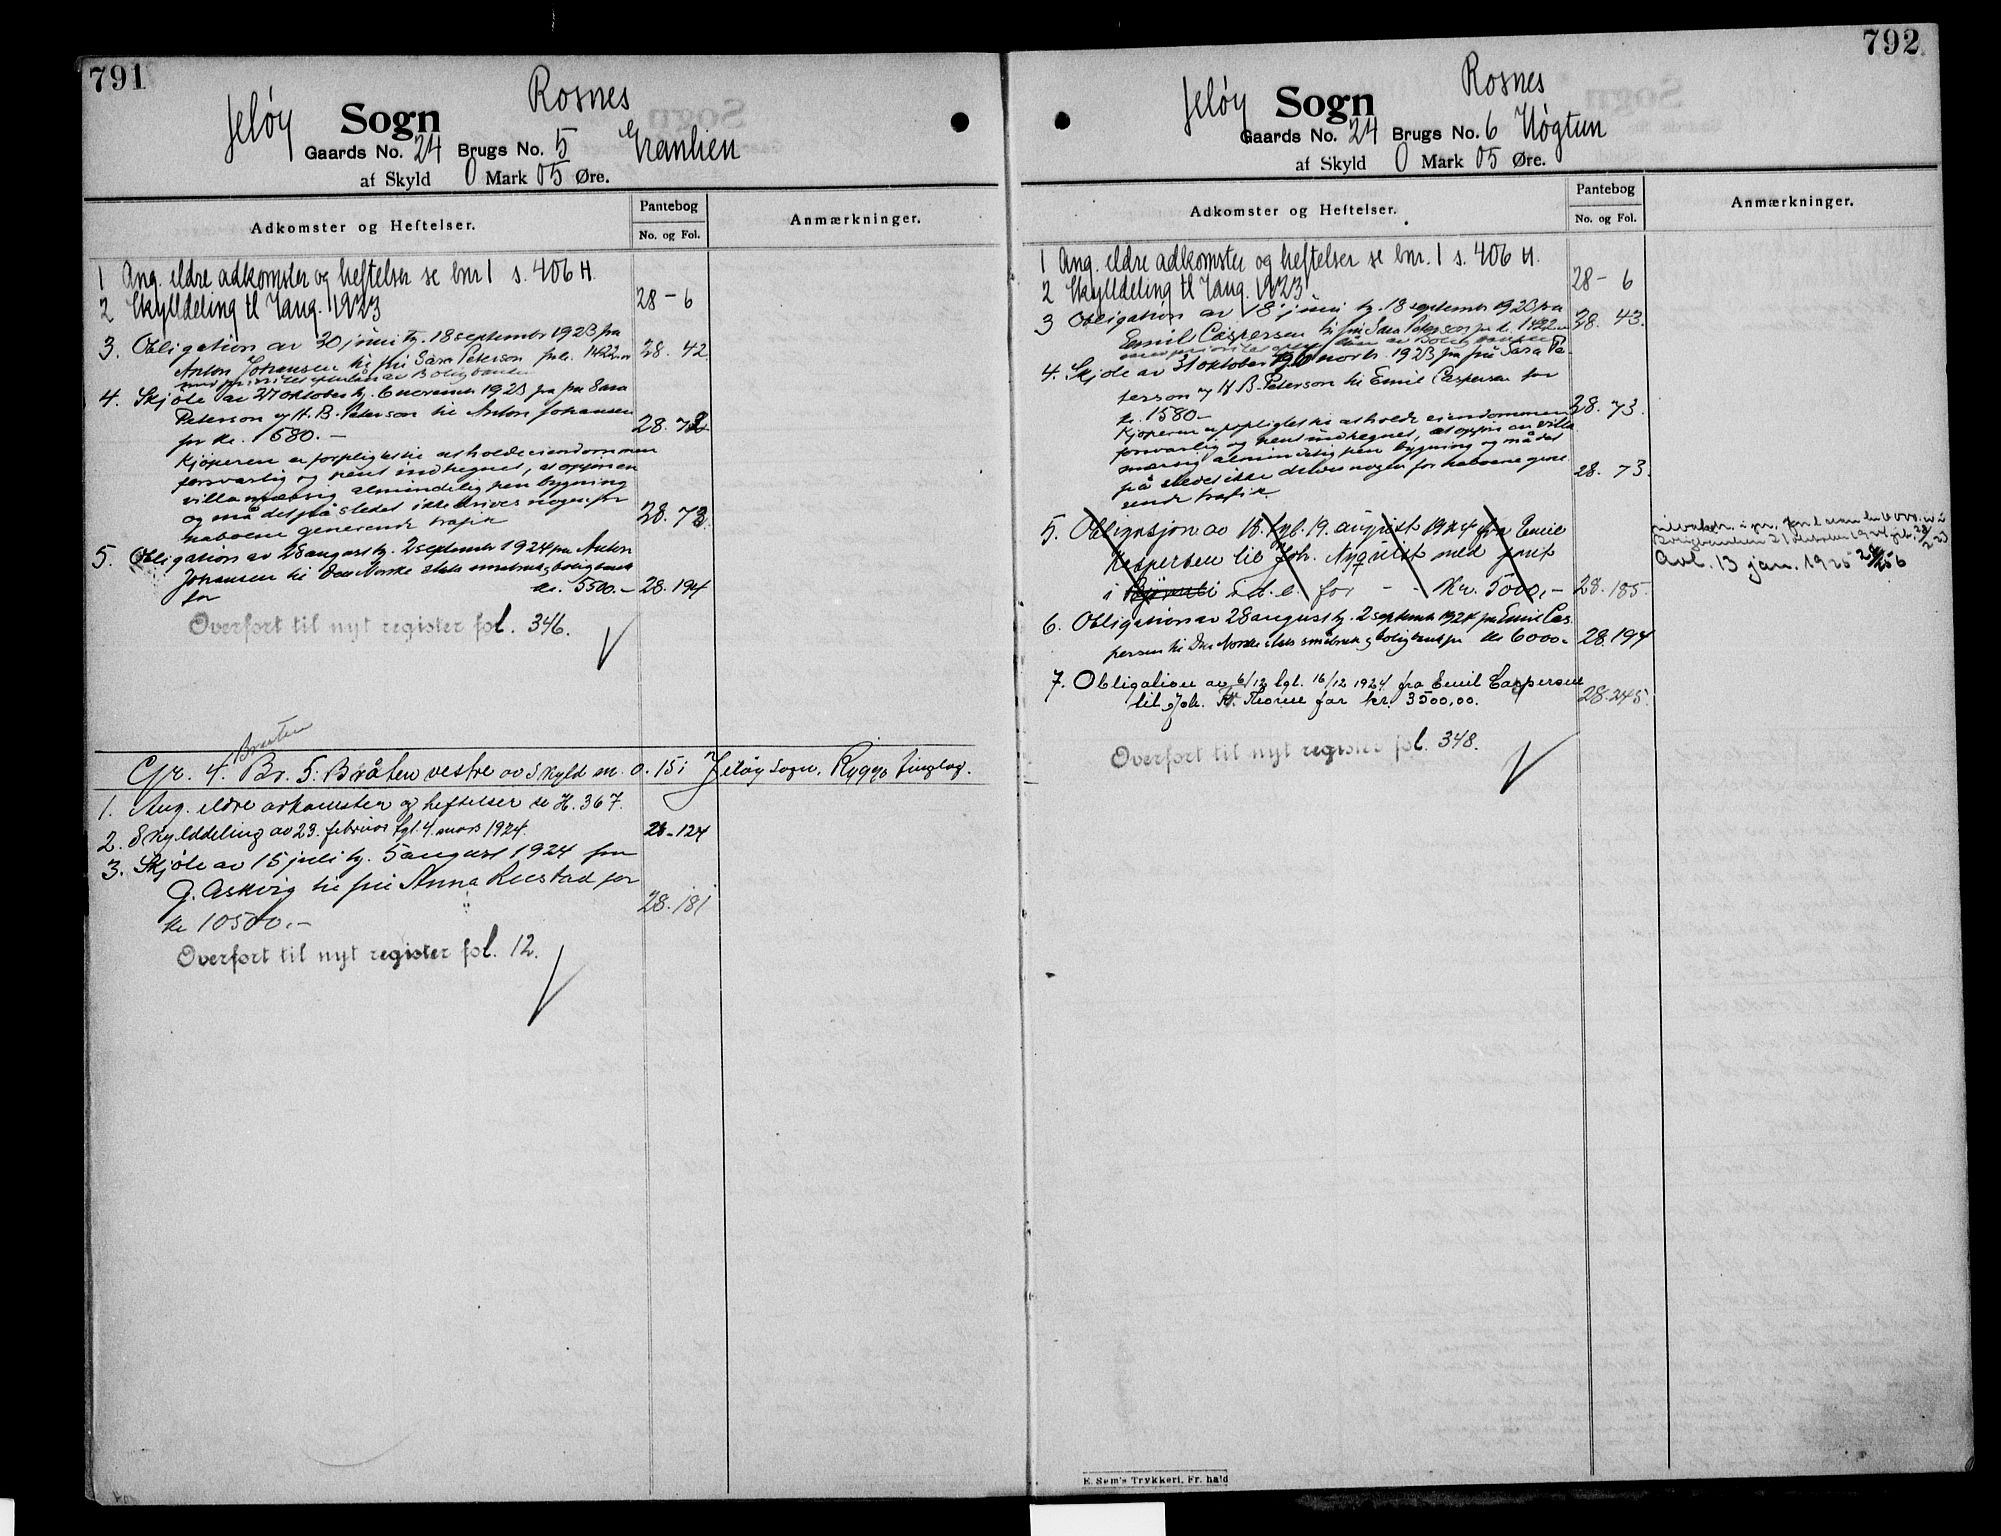 791
Jeløy Sogn Rosnes
Gaards No. 24 Brugs No. 5 Granlien
af Skyld 0 Mark 05 Øre.
Adkomster og Heftelser.
Pantebog
No. og Fol.
Anmærkninger.
1 Ang. eldre adkomster og heftelser se bnr 1 s. 406 H.
2 Skylddeling tl 7 aug. 1923 28 - 6
3. Obligation av 30 juni tg. 18 september 1923 fra
Anton Johansen til fru Sara Peterson for kr. 1422.00 28. 42
med prioritet efter lån av Boligbanken
4. Skjöte av 27 oktober tg. 6 november 1923 fra fru Sara
Peterson og H. B. Peterson til Anton Johansen
for kr. 1580.- 28. 72
Kjøperen er forpligtet til at holde eiendommen
forsvarlig og pent indhegnet, at opføre en
villamæssig almindelig pen bygning
og må det på stedet ikke drives noget for
naboene generende trafik 28. 73.
5. Obligation av 28 august tg. 2 september 1924 fra Anton
Johansen til Den Norske stats småbruk og boligbank
for kr. 5500.- 28. 194
Overført til nyt register fol. 346.
Braaten
Gr. 4. Br. 5. Bråten vestre av skyld m. 0.15 i Jeløy sogn, Rygge tinglag.
1. Ang. eldre adkomster og heftelser se H. 367.
2. Skylddeling av 23. februar tgl. 4. mars 1924. 28 - 124
3. Skjöte av 15 juli tg. 5 august 1924 fra
G. Askvig til frü Anna Ruestad for
kr 10500.- 28. 181
Overført til nyt register fol. 12.
792
Jeløy Sogn Rosnes
Gaards No. 24 Brugs No. 6 Högtun
af Skyld 0 Mark 05 Øre.
Adkomster og Heftelser.
Pantebog
No. og Fol.
Anmærkninger.
1 Ang. eldre adkomster og heftelser se bnr. 1 s. 406 H.
2 Skylddeling tl 7 aug. 1923 28 - 6
3 Obligation av 18 juni tg. 18 september 1923 fra
Emil Caspersen til frü Sara Peterson for kr. 1422.00 28. 43.
med prioritet efter lån av Boligbanken
4. Skjöte av 31 oktober tg. novbr. 1923 fra frü Sara Pe-
terson og H B. Peterson til Emil Caspersen for
kr. 1580.- 28. 73.
Kjøperen er forpligtet til at holde eiendommen
forsvarlig og pent indhegnet, at opføre en villa
mæssig almindelig pen bygning og må det
på stedet ikke drives noget for naboene gene
rende trafik. 28. 73.
5. Obligasjon av 18. tgl. 19. august 1924 fra Emil
Kaspersen til Joh. Nyquist med pant
i d. e. for - - Kr. 5000,- 28. 185.
Avl. 13 jan. 1925
6. Obligation av 28 august tg. 2 september 1924 fra Emil Cas
persen til Den Norske stats småbruk og boligbank for kr 6000.- 28. 194
7. Obligation av 6/12 tgl. 16/12 1924 fra Emil Caspersen
til Joh. Fr. Thorne for kr. 3500,00. 28. 245.
Overført til nyt register fol. 348.
E. Sem's Trykkeri, Fr. hald